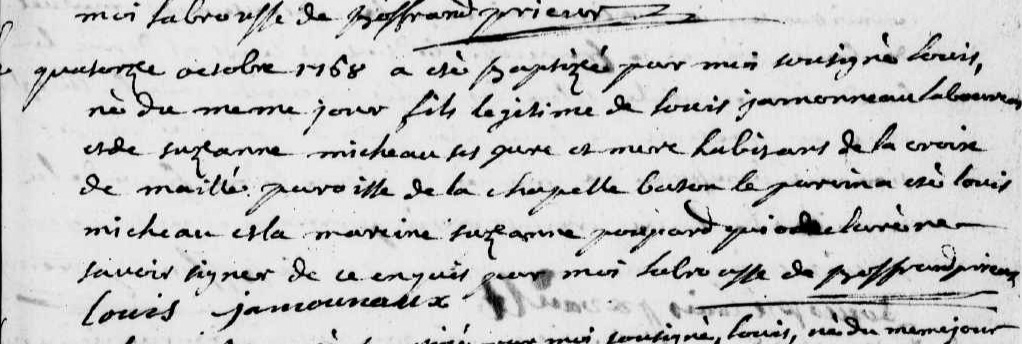 moi labrousse de Boffrand prieur
quatorze octobre 1768 a eté baptizé par moi sousigné louis,
né du meme jour fils legitime de louis jamonneau laboureur
et de suzanne micheau ses pere et mere habitans de la croix
de maillé paroisse de la chapelle baton le parrina eté louis
micheau et la mareine suzanne poupard qui ont declaré ne
savoir signer de ce enquis par moi labrousse de Boffrand prieur
louis jamounaux
sousigné, louis, né du meme jour